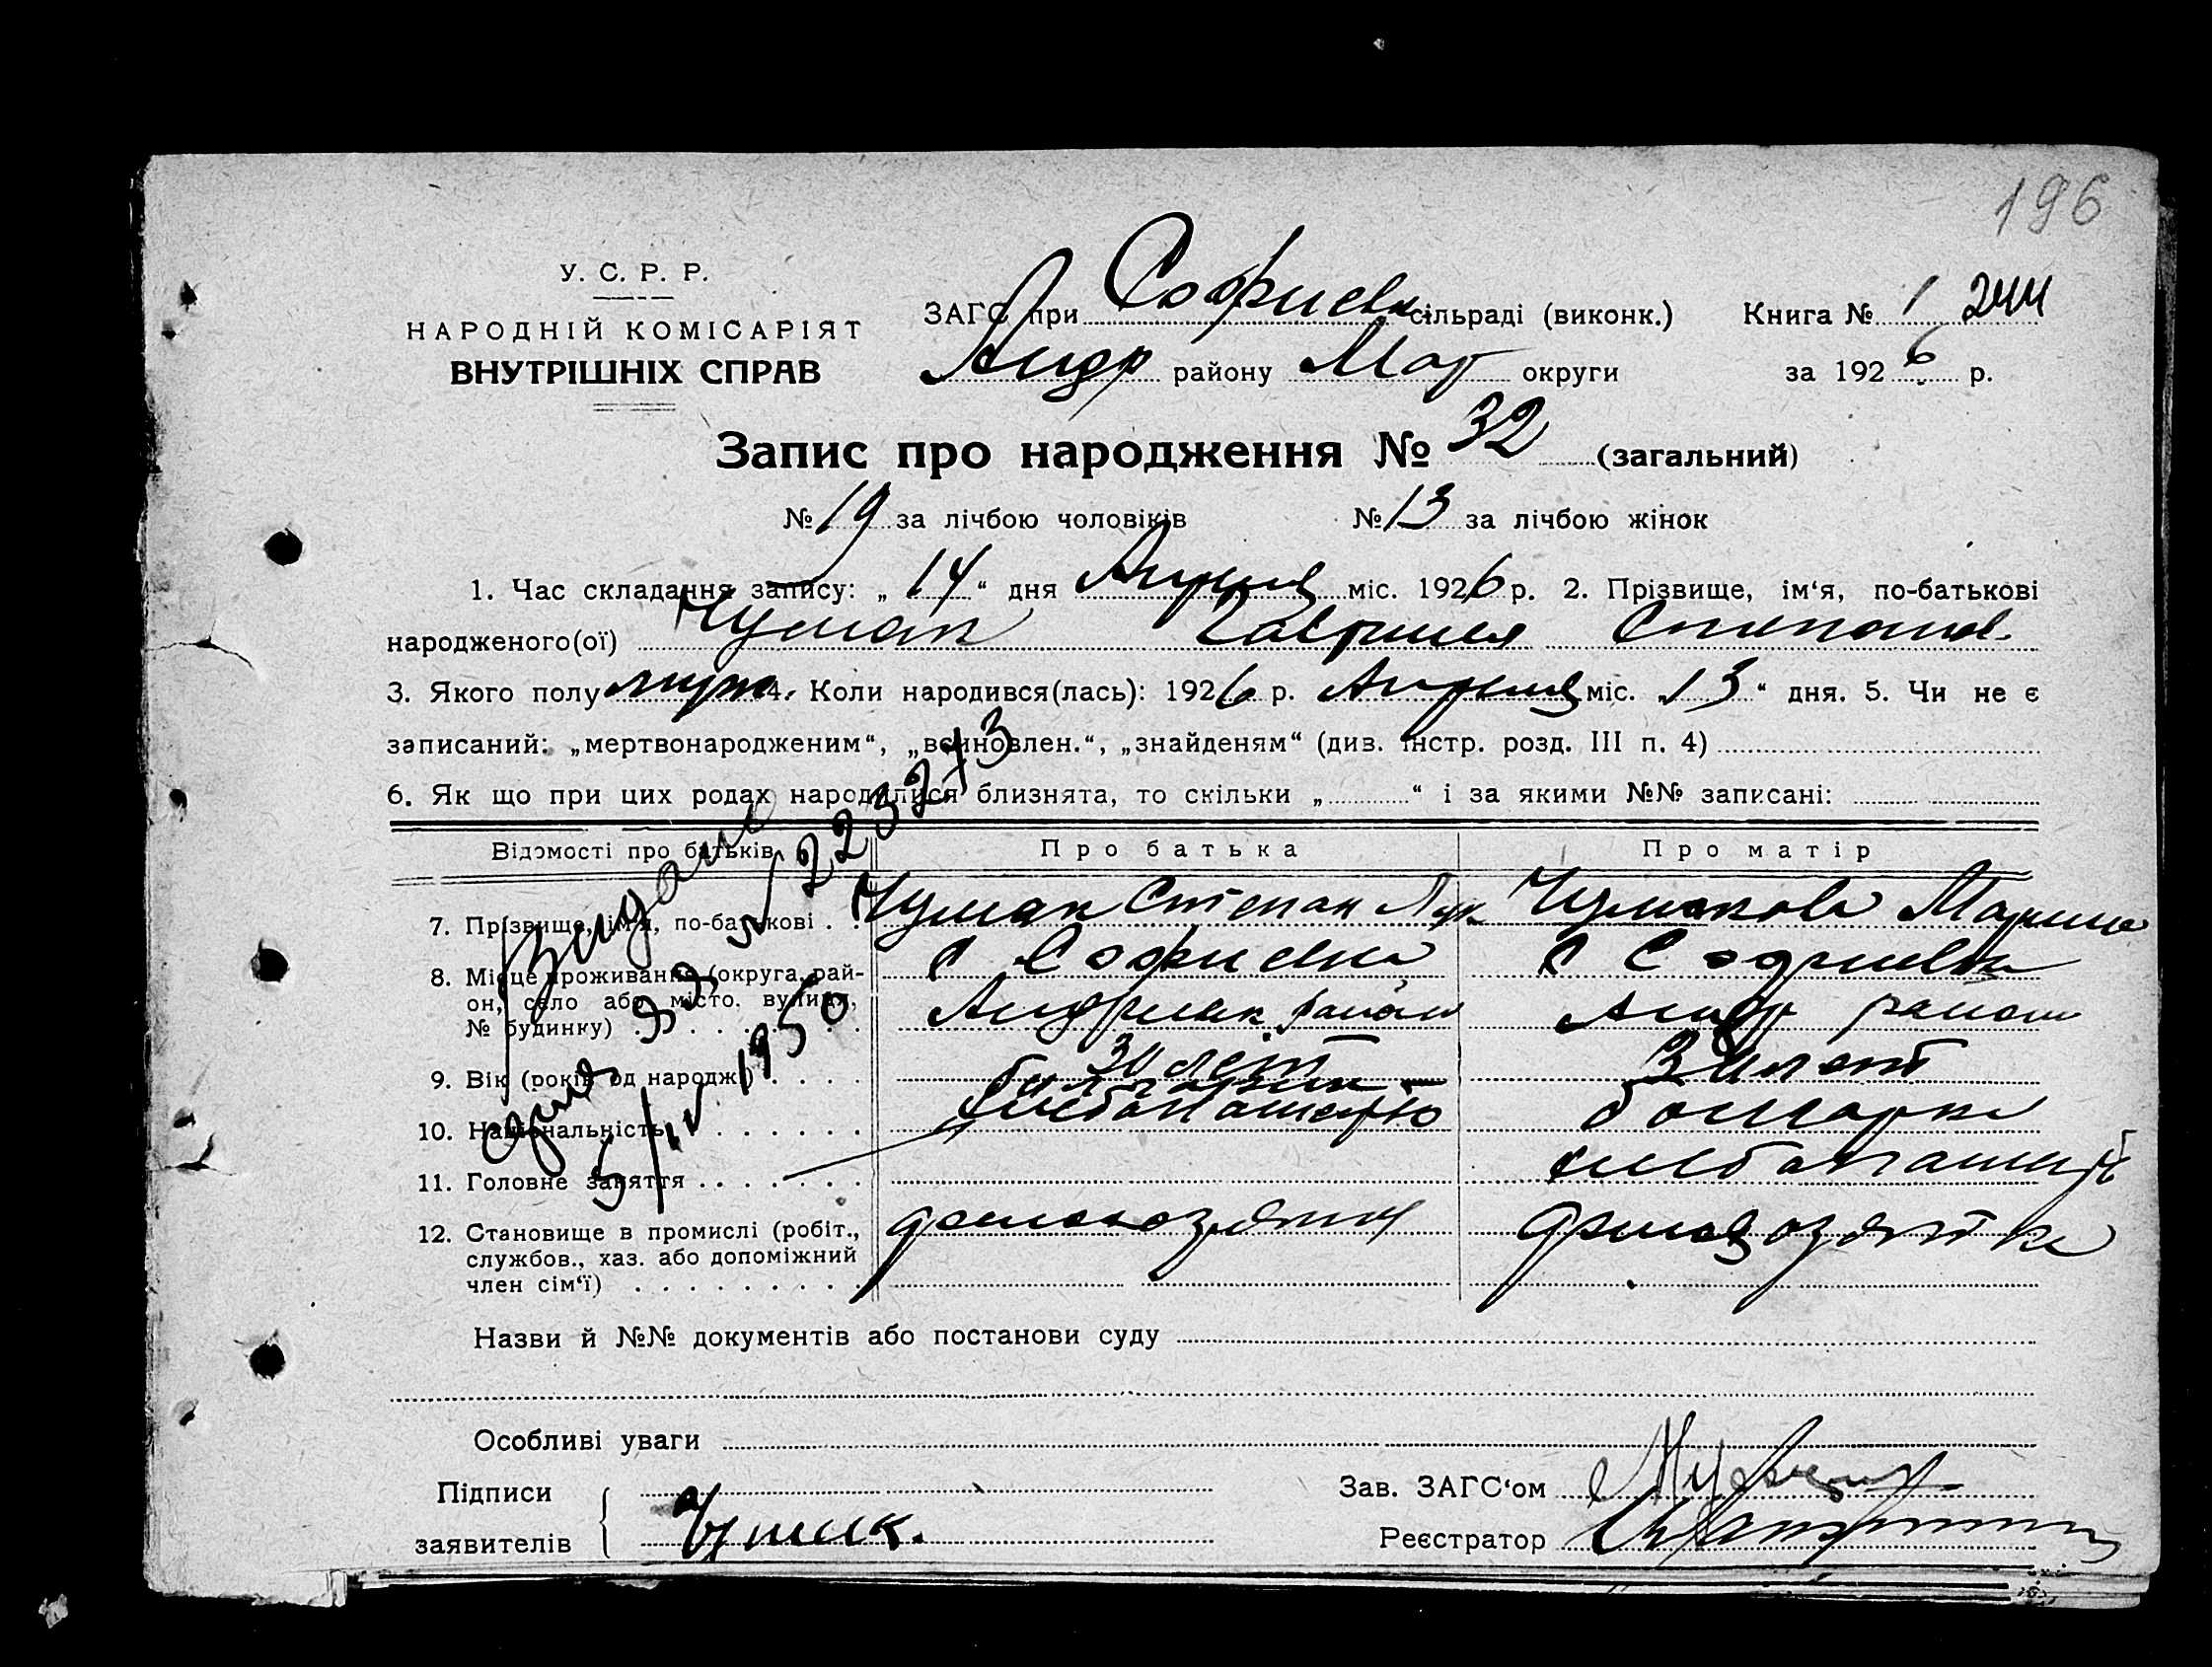 196
У. С. Р. Р.
НАРОДНІЙ КОМІСАРІЯТ
ВНУТРІШНІХ СПРАВ
ЗАГС при Софиевк. сільраді (виконк.) Книга № 1 244
Андр району Мар округи за 1926 р.
Запис про народження № 32 (загальний)
№ 19 за лічбою чоловіків № 13 за лічбою жінок
1. Час складання запису: „ 14 “ дня Апреля міс. 1926 р. 2. Прізвище, ім‘я, по-батькові
народженого(ої) Чумак Гавриил Степанов.
3. Якого полу муж. 4. Коли народився(лась): 1926 р. Апреля міс. „ 13 “ дня. 5. Чи не є
записаний: „мертвонародженим“, „всиновлен.“, „знайденям“ (див. інстр. розд. III п. 4)
6. Як що при цих родах народилися близнята, то скільки „ “ і за якими №№ записані:
Відомості про батьків Про батька Про матір
7. Прізвище, ім‘я, по-батькові Чумак Степан Лук Чумакова Марина
8. Місце проживання (округа, рай- с Софиевка с Софиевка
он, село або місто. вулиця, Андр район
№ будинку)
9. Вік (років од народж.) 30 лет лет
10. Національність болгарка
11. Головне заняття
12. Становище в промислі (робіт., домохозяин домохозяйка
службов., хаз. або допоміжний
член сім‘ї)
Видано
5/IV 1950
Назви й №№ документів або постанови суду
Особливі уваги
Підписи
заявителів Чумак.
Зав. ЗАГС‘ом
Реєстратор